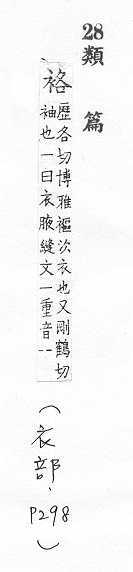 28類篇
袼歷各切博雅裾次衣也又剛鶴切
袖也一曰衣腋縫文一重音一
(衣部、P298)